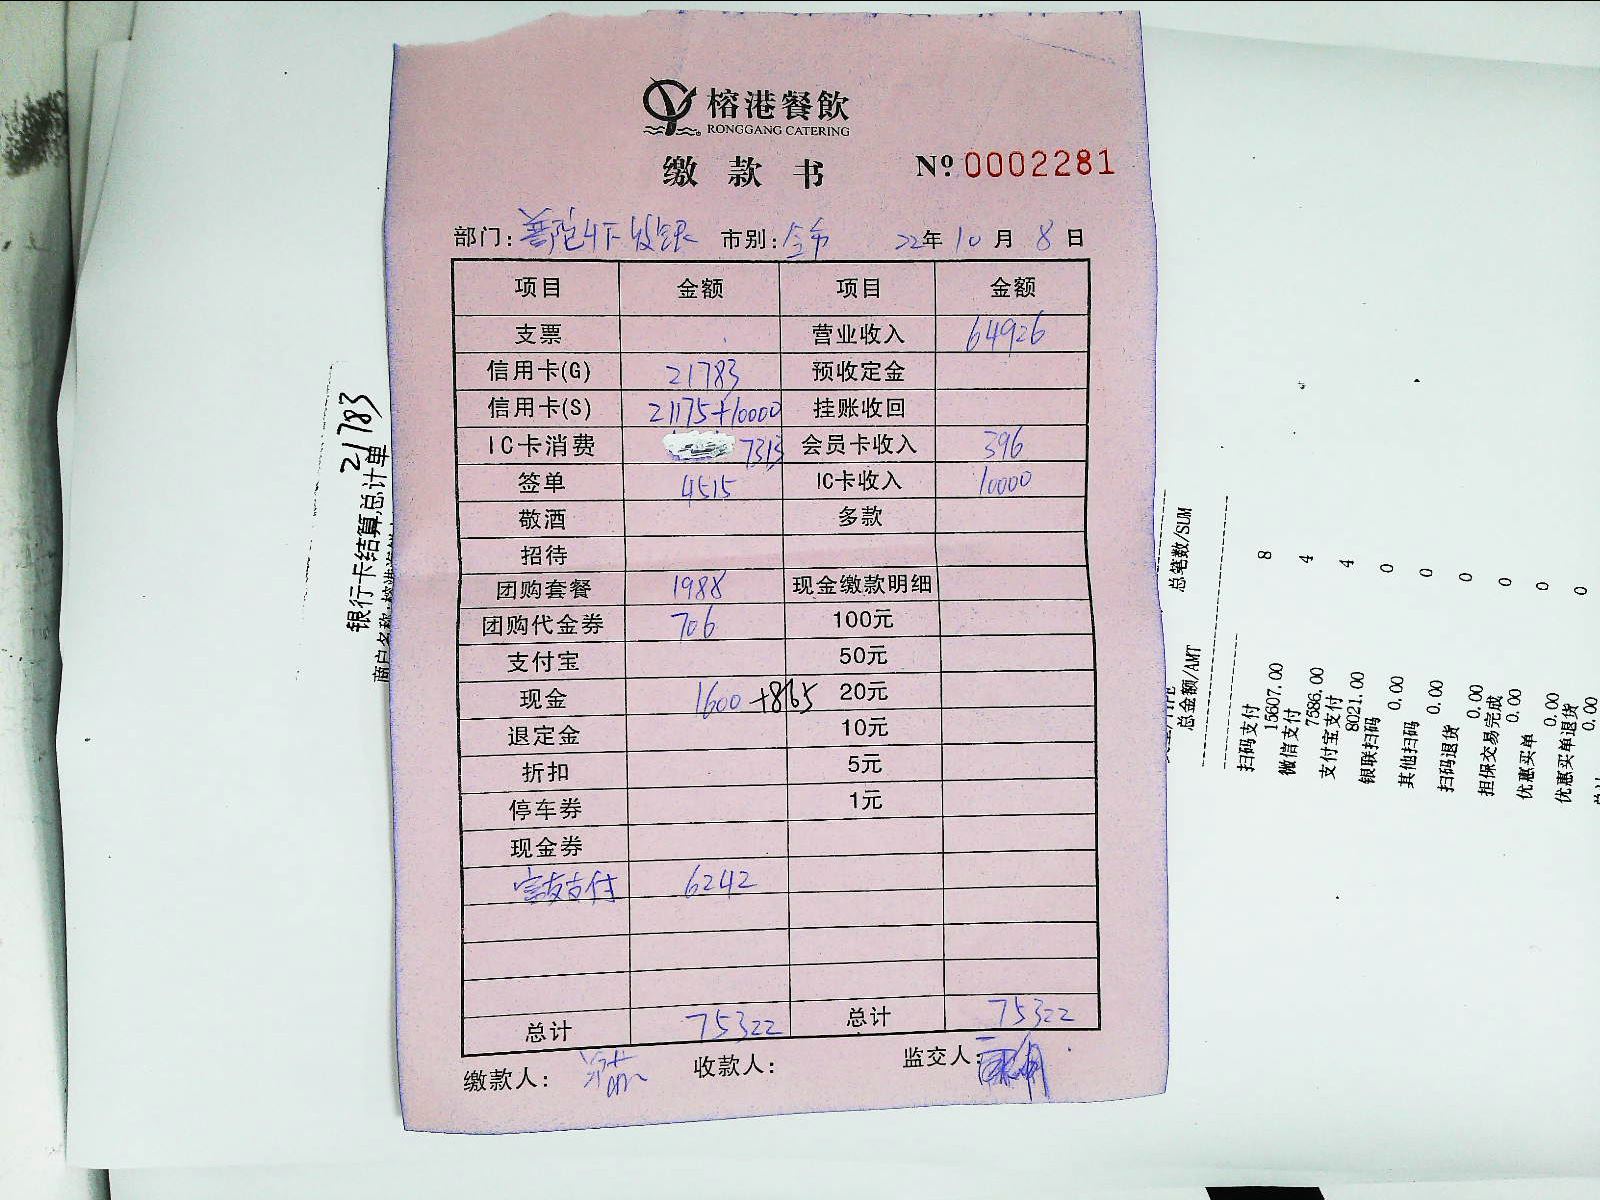 榕港餐飲
RONGGANG CATERING
缴款书 Nº 0002281
部门: 普陀4F收银 市别: 全市 22年10月8日
项目 金额 项目 金额
支票 营业收入 64926
信用卡(G) 21783 预收定金
信用卡(S) 21175+10000 挂账收回
IC卡消费 7313 会员卡收入 396
签单 4515 IC卡收入 10000
敬酒 多款
招待
团购套餐 1988 现金缴款明细
团购代金券 706 100元
支付宝 50元
现金 1600+8165 20元
退定金 10元
折扣 5元
停车券 1元
现金券
支付 6242
总计 75322 总计 75322
缴款人: 收款人: 监交人:
21783
银行卡结算总计单
商户名称:
总笔数/SUM
总金额/AMT
扫码支付
15607.00 8
微信支付
7586.00 4
支付宝支付
8021.00 4
银联扫码
0.00 0
其他扫码
0.00 0
扫码退货
0.00 0
担保交易完成
0.00 0
优惠买单
0.00 0
优惠买单退货
0.00 0